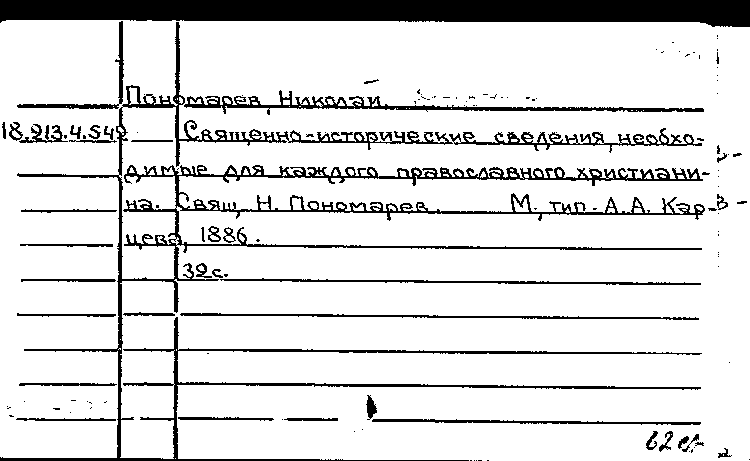 Пономарев, Николай.
18.213.4.542 Священно-исторические сведения, необхо-
димые для каждого православного христиани-
на. Свящ. Н. Пономарев. М., тип. А. А. Кар-
цева, 1886.
32 с.